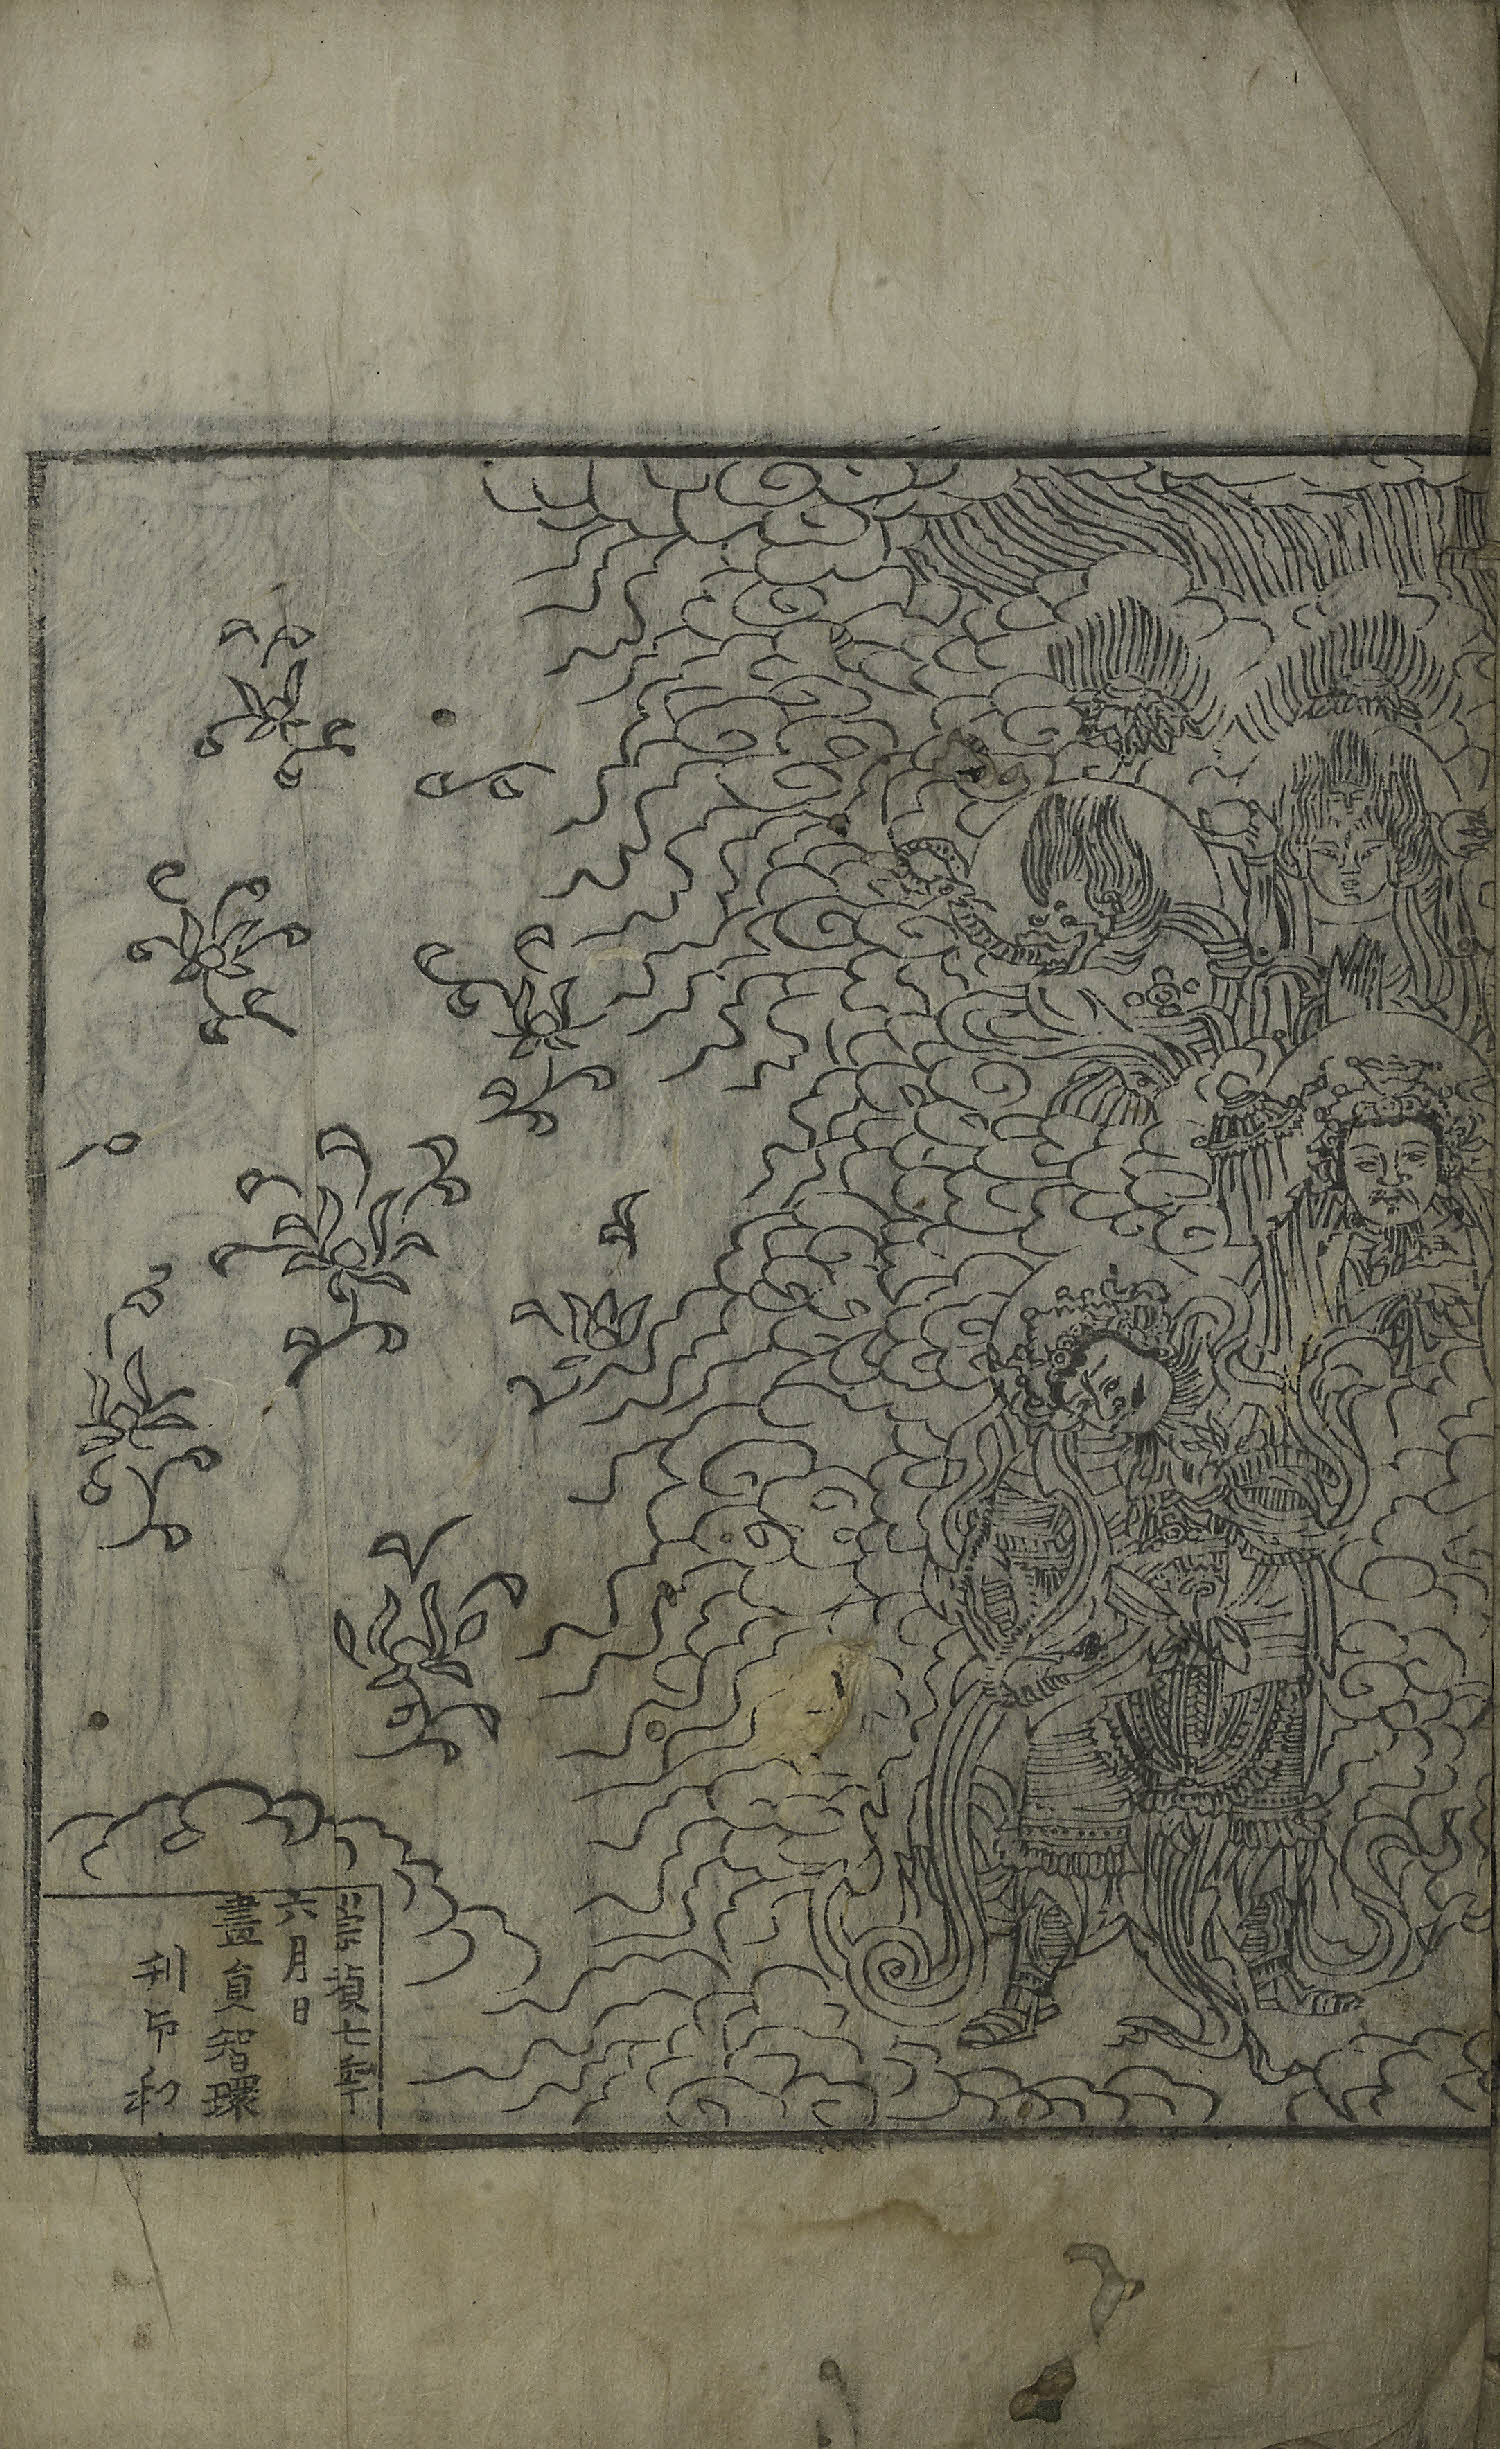 崇禎七年
六月日
畫員智環
刊印和